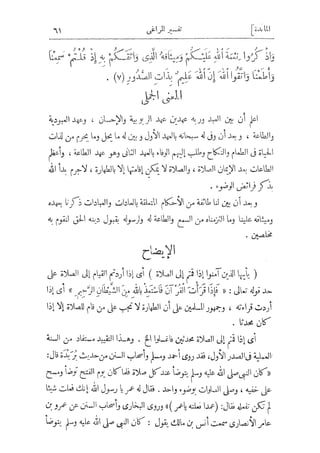 المائدة]
تفسير المراغى
٦١
وَاذْكُرُوا نِعْمَةَ اللهِ عَلَيْكُمْ وَمِيثَاقَهُ الَّذِى وَاثَقَكُمْ بِهِ إِذْ قُلْتُمْ سَمِعْنَا
وَأَطَعْنَا وَاتَّقُوا اللهَ إِنَّ اللهَ عَلِيمٌ بِذَاتِ الصُّدُورِ (٧) .
المعنى الجملى
اعلم أن بين العبد وربه عهدين عهد الربوبية والإحسان ، وعهد العبودية
والطاعة ، وبعد أن وفى له سبحانه بالعهد الأول وبين له ما يحل وما يحرم من لذات
الحياة فى الطعام والنكاح وطلب إليهم الوفاء بالعهد الثانى وهو عهد الطاعة ، وأعظم
الطاعات بعد الإيمان الصلاة ، والصلاة لا يمكن إقامتها إلا بالطهارة ، لا جرم بدأ الله
بذكر فرائض الوضوء .
وبعد أن بين لنا طائفة من الأحكام المتعلقة بالعادات والعبادات ذكرنا بعهده
وميثاقه علينا وما التزمناه من السمع والطاعة له ولرسوله بقبول دينه الحق لنقوم به
مخلصين .
الإيضاح
( يأيها الذين آمنوا إذا قمتم إلى الصلاة ) أى إذا أردتم القيام إلى الصلاة على
حد قوله تعالى : « فَإِذَا قَرَأْتَ الْقُرْآنَ فَاسْتَعِذْ بِاللهِ مِنَ الشَّيْطَانِ الرَّجِيمِ » أى إذا
أردت قراءته ، وجمهور المسلمين على أن الطهارة لا تجب على من قام للصلاة إلا إذا
كان محدثا .
أى إذا قمتم إلى الصلاة محدثين فاغسلوا الخ . وهذا التقييد مستفاد من السنة
العملية فى الصدر الأول، فقد روى أحمد ومسلم وأصحاب السنن من حديث بُرَيْدَة قال:
«كان النبى صلى الله عليه وسلم يتوضأ عند كل صلاة فلما كان يوم الفتح توضأ ومسح
على خفيه ، وصلى الصلوات بوضوء واحد . فقال له عمر يا رسول الله إنك فعلت شيئا
لم تكن تفعله فقال: (عمدا فعلته يا عمر )» وروى البخارى وأصحاب السنن عن عمرو بن
عامر الأنصارى سمعت أنس بن مالك يقول : كان النبى صلى الله عليه وسلم يتوضأ